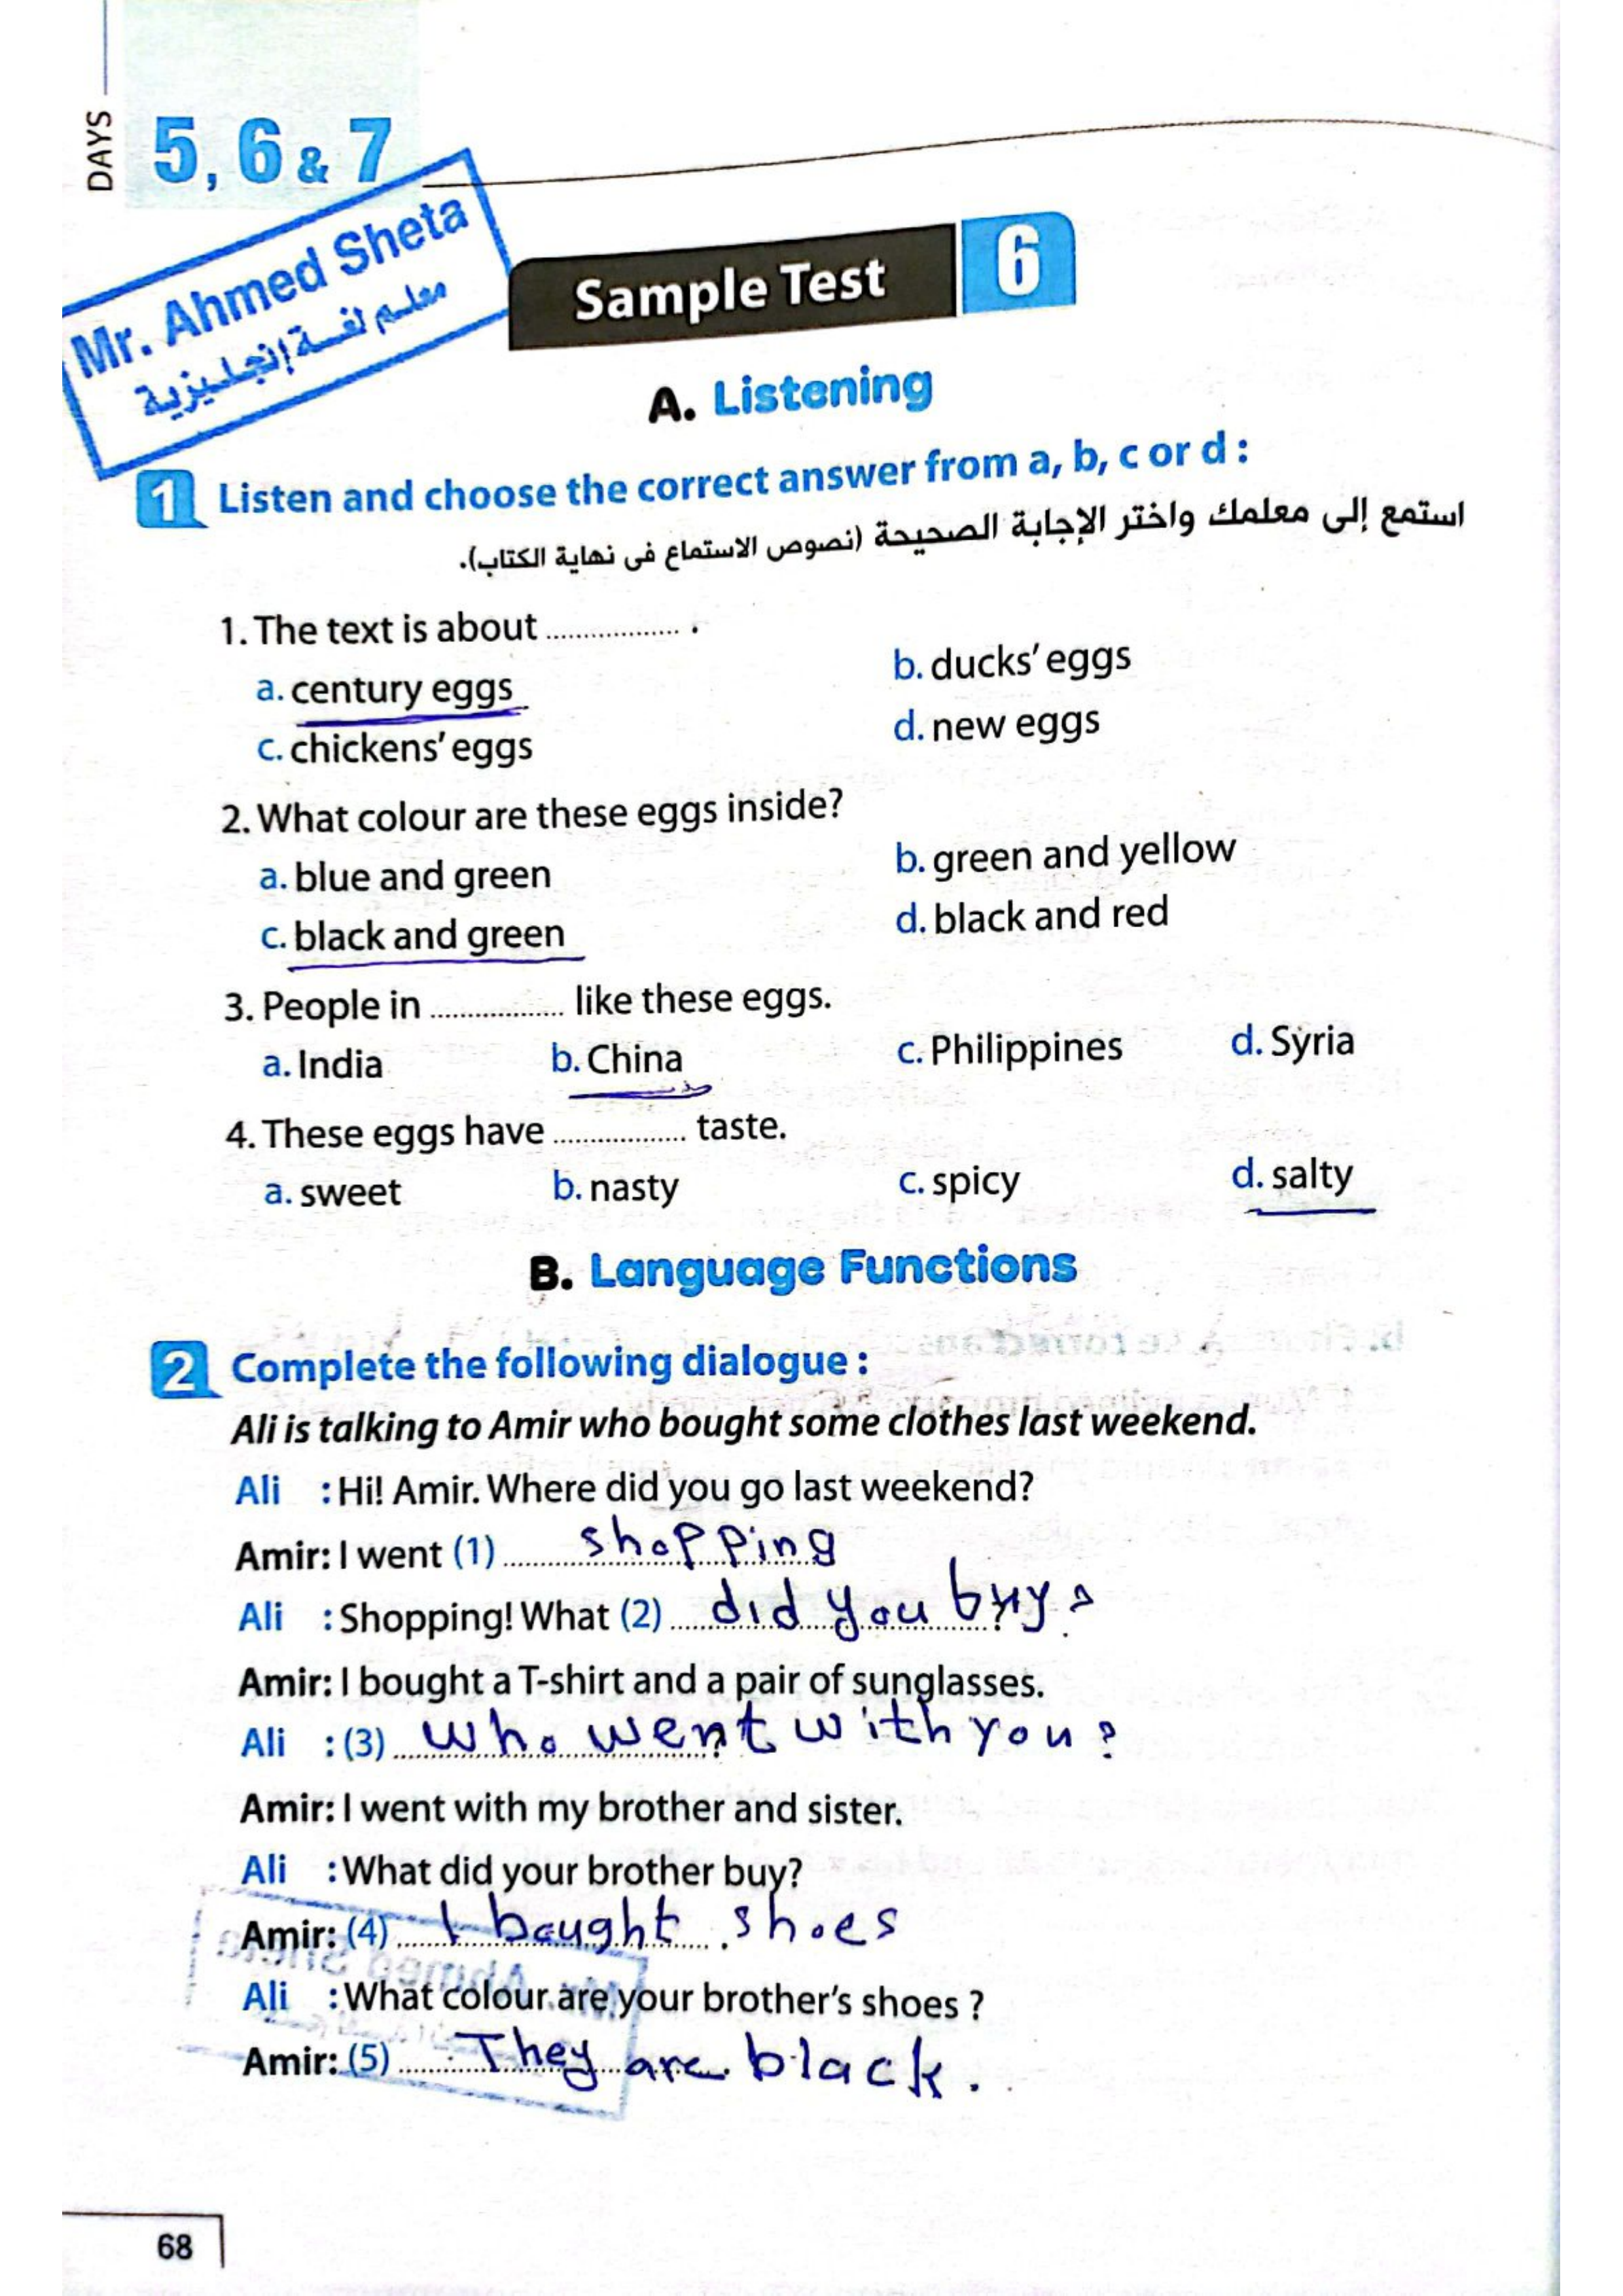 DAYS
5, 6 & 7
Mr. Ahmed Sheta
معلم لغة إنجليزية
Sample Test 6
A. Listening
1 Listen and choose the correct answer from a, b, c or d :
استمع إلى معلمك واختر الإجابة الصحيحة (نصوص الاستماع فى نهاية الكتاب).
1. The text is about .................. .
a. century eggs b. ducks' eggs
c. chickens' eggs d. new eggs
2. What colour are these eggs inside?
a. blue and green b. green and yellow
c. black and green d. black and red
3. People in .................. like these eggs.
a. India b. China c. Philippines d. Syria
4. These eggs have .................. taste.
a. sweet b. nasty c. spicy d. salty
B. Language Functions
2 Complete the following dialogue :
Ali is talking to Amir who bought some clothes last weekend.
Ali : Hi! Amir. Where did you go last weekend?
Amir: I went (1) shopping
Ali : Shopping! What (2) did you buy ?
Amir: I bought a T-shirt and a pair of sunglasses.
Ali : (3) who went with you ?
Amir: I went with my brother and sister.
Ali : What did your brother buy?
Amir: (4) I bought shoes
Ali : What colour are your brother's shoes ?
Amir: (5) They are black.
68